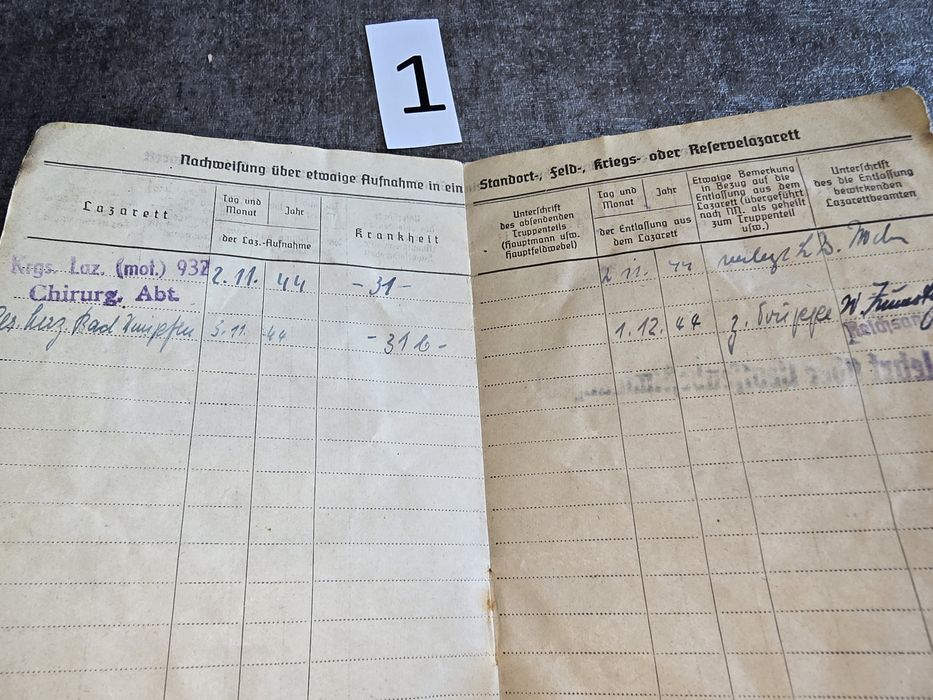 1
Nachweisung über etwaige Aufnahme in ein Standort-, Feld-, Kriegs- oder Reservelazarett
Lazarett
Tag und
Monat
Jahr
der Laz.-Aufnahme
Krankheit
Unterschrift
des absendenden
Truppenteils
(Hauptmann usw.
Hauptfeldwebel)
Tag und
Monat
Jahr
der Entlassung aus
dem Lazarett
Etwaige Bemerkung
in Bezug auf die
Entlassung aus dem
Lazarett (übergeführt
nach NN. als geheilt
zum Truppenteil
usw.)
Unterschrift
des die Entlassung
bewirkenden
Lazarettbeamten
Krgs. Laz. (mot.) 932 2.11. 44 -31- 2.11. 44 verlegt
Chirurg. Abt.
Res. Laz. Bad Wimpfen 3.11. 44 -31b- 1.12. 44 z. Truppe